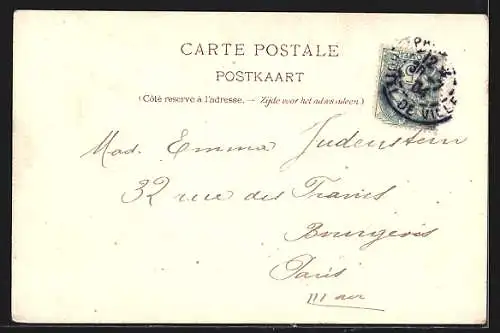 CARTE POSTALE
POSTKAART
(Côté reservé à l'adresse. — Zijde voor het adres alleen.)
DE VILLE
Mad. Emma Judenstein
32 rue des Francs
Bourgeois
Paris
III arr